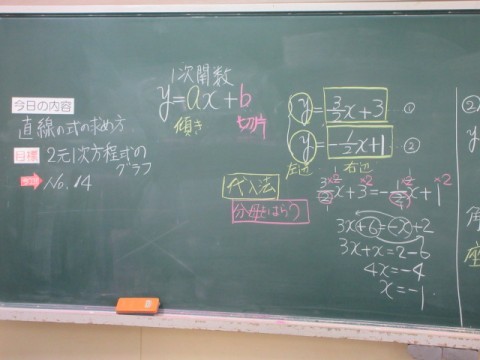 今日の内容
直線の式の求め方
目標 2元1次方程式の
グラフ
No.14
1次関数
y=ax+b
傾き 切片
y=3/2x+3 ①
y=-1/2x+1 ②
左辺 右辺
代入法
分母をはらう
3/2x+3=-1/2x+1
×2 ×2
3x+6=-x+2
3x+x=2-6
4x=-4
x=-1
②
y
角
座